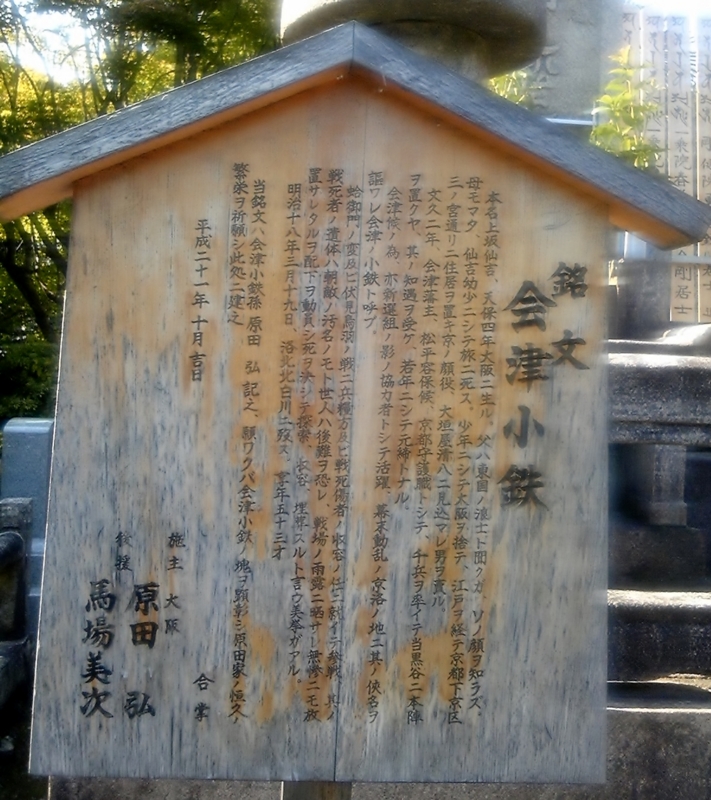 銘文
会津小鉄
本名上坂仙吉、天保四年大阪ニ生ル。父ハ東国ノ浪士ト聞クガ、ソノ顔ヲ知ラズ。
母モマタ、仙吉幼少ニシテ旅ニ死ス。少年ニシテ大阪ヲ捨テ、江戸ヲ経テ京都下京区
三ノ宮通リニ住居ヲ置キ京ノ顔役、大垣屋清八ニ見込マレ男ヲ売ル。
文久二年、会津藩主、松平容保候、京都守護職トシテ、千兵ヲ率イテ当黒谷ニ本陣
ヲ置クヤ、其ノ知遇ヲ受ケ、若年ニシテ元締トナル。
会津候ノ為、亦新選組ノ影ノ協力者トシテ活躍、幕末動乱ノ京洛ノ地ニ其ノ侠名ヲ
謳ワレ会津ノ小鉄ト呼ブ。
蛤御門ノ変及ビ伏見鳥羽ノ戦ニ兵糧方及ビ戦死傷者ノ収容ノ任ニ就イテ参戦、其ノ
戦死者ノ遺体ハ朝敵ノ汚名ノモト世人ハ後難ヲ恐レ、戦場ノ雨露ニ晒サレ無惨ニモ放
置サレタルヲ配下ヲ動員シ死ヲ決シテ探索、収容、埋葬スルト言ウ美挙ガアル。
明治十八年三月十九日、洛北北白川ニ歿ス、享年五十三才
当銘文ハ会津小鉄孫 原田 弘 記之、願ワクバ会津小鉄ノ塊ヲ顕彰シ原田家ノ恒久ノ
繁栄ヲ祈願シ此処ニ建之
平成二十一年十月吉日
合掌
施主 大阪
原田 弘
後援
馬場美次